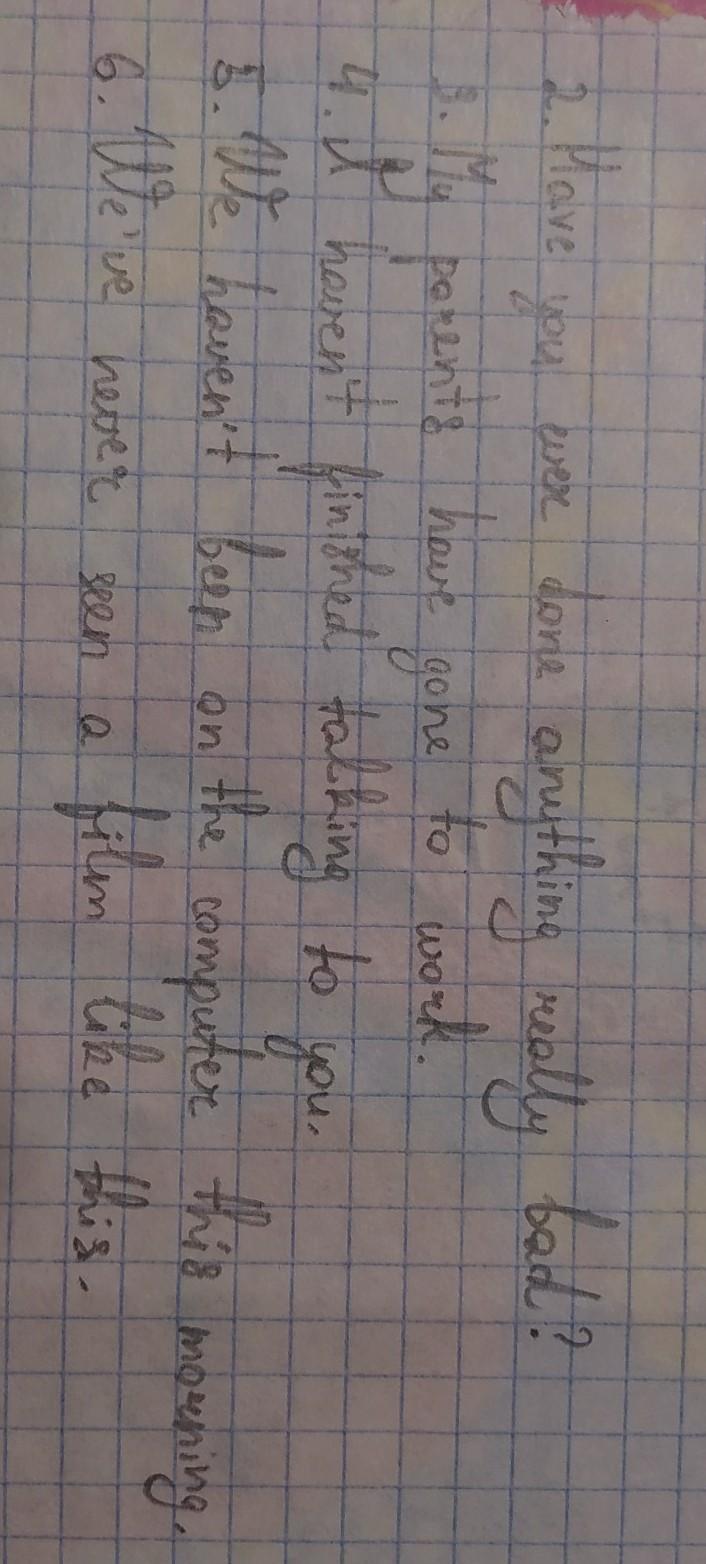 2. Have you ever done anything really bad?
3. My parents have gone to work.
4. I haven't finished talking to you.
5. We haven't been on the computer this morning.
6. We've never seen a film like this.